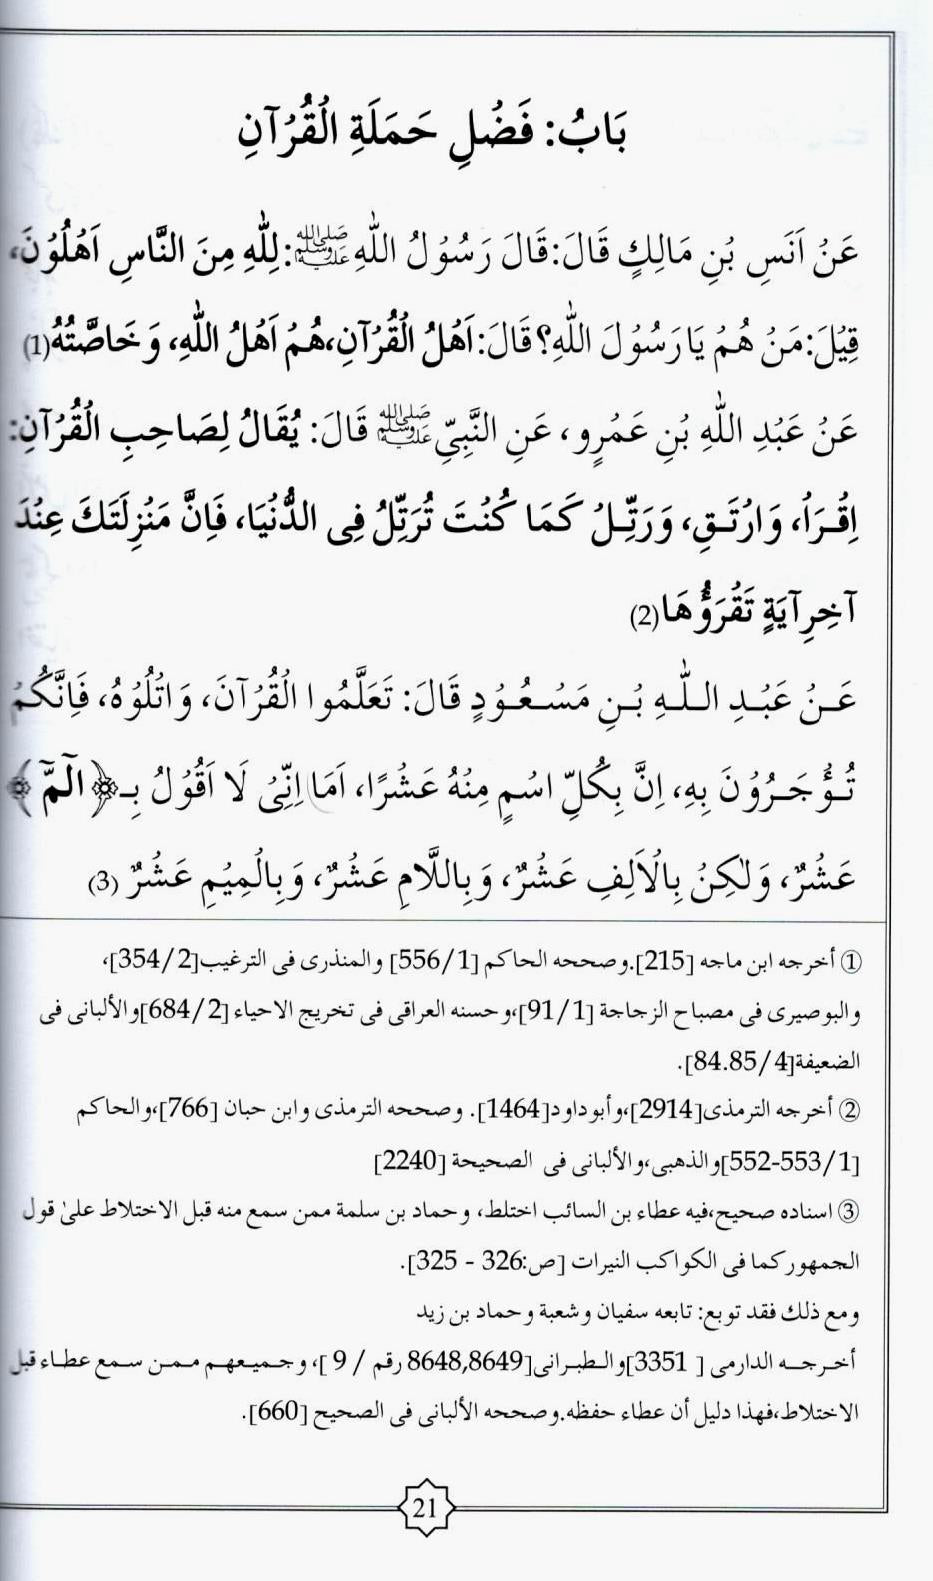 بَابُ: فَضْلِ حَمَلَةِ الْقُرْآنِ
عَنْ اَنَسِ بْنِ مَالِكٍ قَالَ: قَالَ رَسُوْلُ اللّٰهِ ﷺ: لِلّٰهِ مِنَ النَّاسِ اَهْلُوْنَ،
قِيْلَ: مَنْ هُمْ يَا رَسُوْلَ اللّٰهِ؟ قَالَ: اَهْلُ الْقُرْآنِ، هُمْ اَهْلُ اللّٰهِ، وَخَاصَّتُهُ (1)
عَنْ عَبْدِ اللّٰهِ بْنِ عَمْرٍو، عَنِ النَّبِيِّ ﷺ قَالَ: يُقَالُ لِصَاحِبِ الْقُرْآنِ:
اِقْرَاْ، وَارْتَقِ، وَرَتِّلْ كَمَا كُنْتَ تُرَتِّلُ فِى الدُّنْيَا، فَاِنَّ مَنْزِلَتَكَ عِنْدَ
آخِرِ آيَةٍ تَقْرَؤُهَا (2)
عَنْ عَبْدِ اللّٰهِ بْنِ مَسْعُوْدٍ قَالَ: تَعَلَّمُوا الْقُرْآنَ، وَاتْلُوْهُ، فَاِنَّكُمْ
تُؤْجَرُوْنَ بِهِ، اِنَّ بِكُلِّ اسْمٍ مِنْهُ عَشْرًا، اَمَا اِنِّىْ لَا اَقُوْلُ بِـ ﴿الٓمّٓ﴾
عَشْرٌ، وَلٰكِنْ بِالْاَلِفِ عَشْرٌ، وَبِاللَّامِ عَشْرٌ، وَبِالْمِيْمِ عَشْرٌ (3)
① أخرجه ابن ماجه [215]. وصححه الحاكم [556/1] والمنذرى فى الترغيب [354/2]،
والبوصيرى فى مصباح الزجاجة [91/1]، وحسنه العراقى فى تخريج الاحياء [684/2] والألبانى فى
الضعيفة [84.85/4].
② أخرجه الترمذى [2914]، وأبو داود [1464]. وصححه الترمذى وابن حبان [766]، والحاكم
[552-553/1] والذهبى، والألبانى فى الصحيحة [2240]
③ اسناده صحيح، فيه عطاء بن السائب اختلط، وحماد بن سلمة ممن سمع منه قبل الاختلاط علىٰ قول
الجمهور كما فى الكواكب النيرات [ص:326 - 325].
ومع ذلك فقد توبع: تابعه سفيان وشعبة وحماد بن زيد
أخرجه الدارمى [ 3351] والطبرانى [8648,8649 رقم / 9 ]، وجميعهم ممن سمع عطاء قبل
الاختلاط، فهذا دليل أن عطاء حفظه. وصححه الألبانى فى الصحيح [660].
21